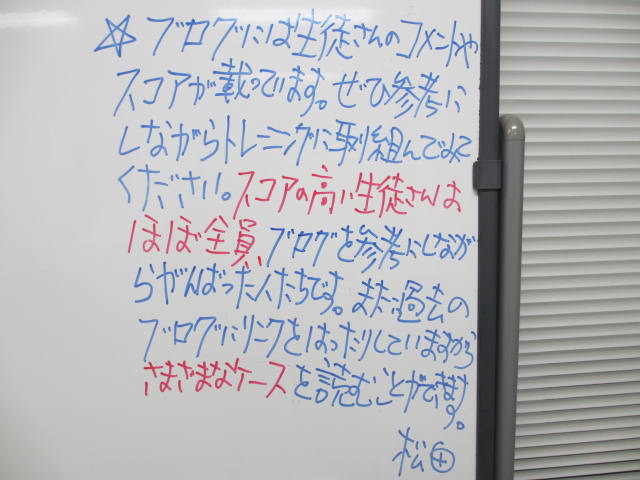 ☆ ブログには生徒さんのコメントや
スコアが載っています。ぜひ参考に
しながらトレーニングに取り組んでみて
ください。スコアの高い生徒さんは
ほぼ全員、ブログを参考にしなが
らがんばった人たちです。また過去の
ブログにリンクをはったりしていますから
さまざまなケースを読むことができます。
松田